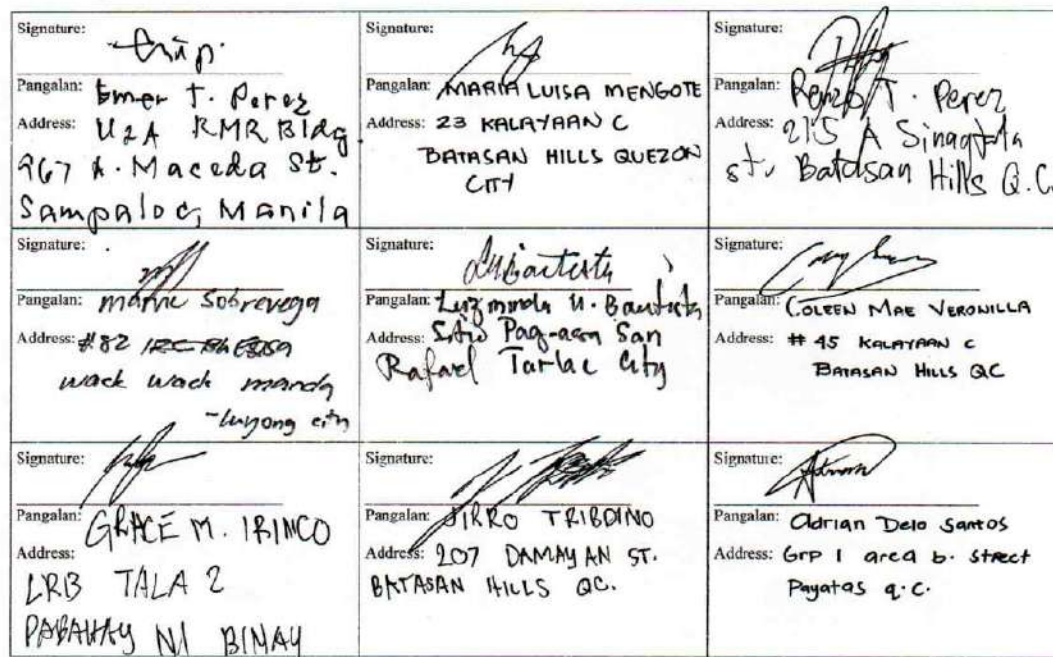 Signature:
Pangalan: Emer T. Perez
Address: U2A RMR Bldg
967 A. Maceda St.
Sampaloc, Manila
Signature:
Pangalan: MARIA LUISA MENGOTE
Address: 23 KALAYAAN C
BATASAN HILLS QUEZON
CITY
Signature:
Pangalan: Renzo T. Perez
Address: 215 A Sinagtala
st. Batasan Hills Q.C.
Signature:
Pangalan: Sobrevega
Address: #82
wack wack manda
-luyong city
Signature: Bautista
Pangalan: Luzminda U. Bautista
Address: Sitio Pag-asa San
Rafael Tarlac City
Signature:
Pangalan: COLEEN MAE VERONILLA
Address: # 45 KALAYAAN C
BATASAN HILLS QC
Signature:
Pangalan: GRACE M. IRINCO
Address:
LRB TALA 2
PABAHAY NI BINAY
Signature:
Pangalan: JIRRO TRIBDINO
Address: 207 DAMAYAN ST.
BATASAN HILLS QC.
Signature: Adrian
Pangalan: Adrian Delo Santos
Address: Grp 1 area b. street
Payatas q.c.